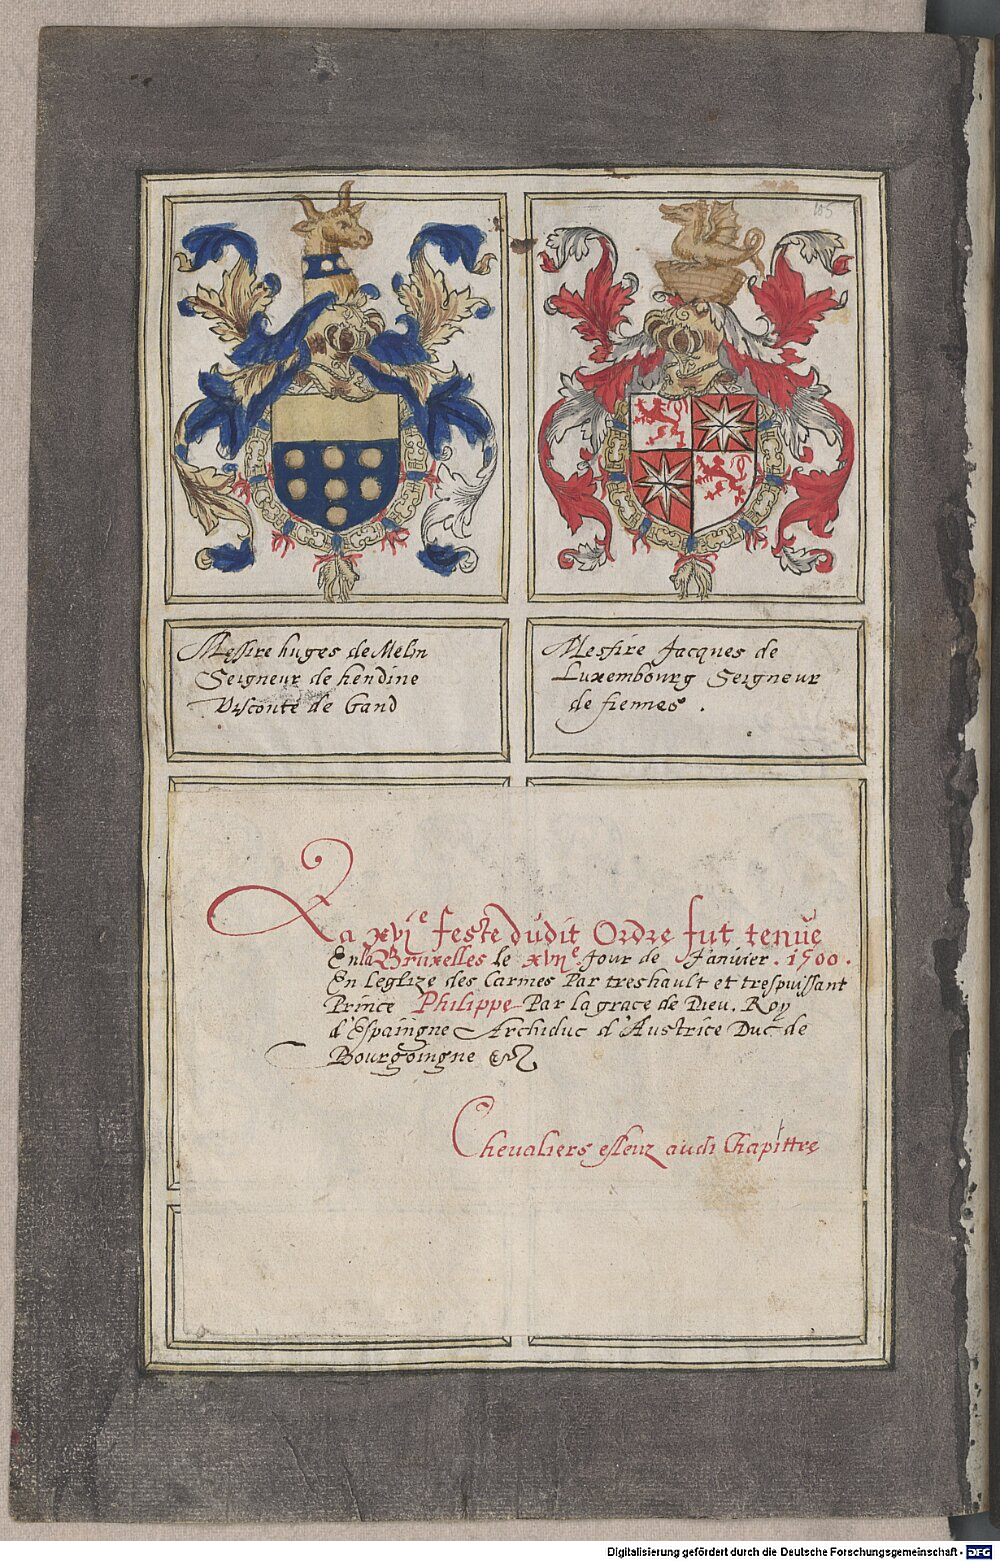 105
Messire huges de Melin
Seigneur de hendine
Visconte de Gand
Messire Jacques de
Luxembourg Seigneur
de fiennes .
La xvjᵉ feste dudit Ordre fut tenue
En la Bruxelles le xvijᵉ Jour de Janvier . 1500 .
En leglize des Carmes Par treshault et trespuissant
Prince Philippe Par la grace de Dieu . Roy
d'Espaingne Archiduc d'Austrice Duc de
Bourgoingne
Chevaliers esleuz audi Chapittre
Digitalisierung gefördert durch die Deutsche Forschungsgemeinschaft - DFG